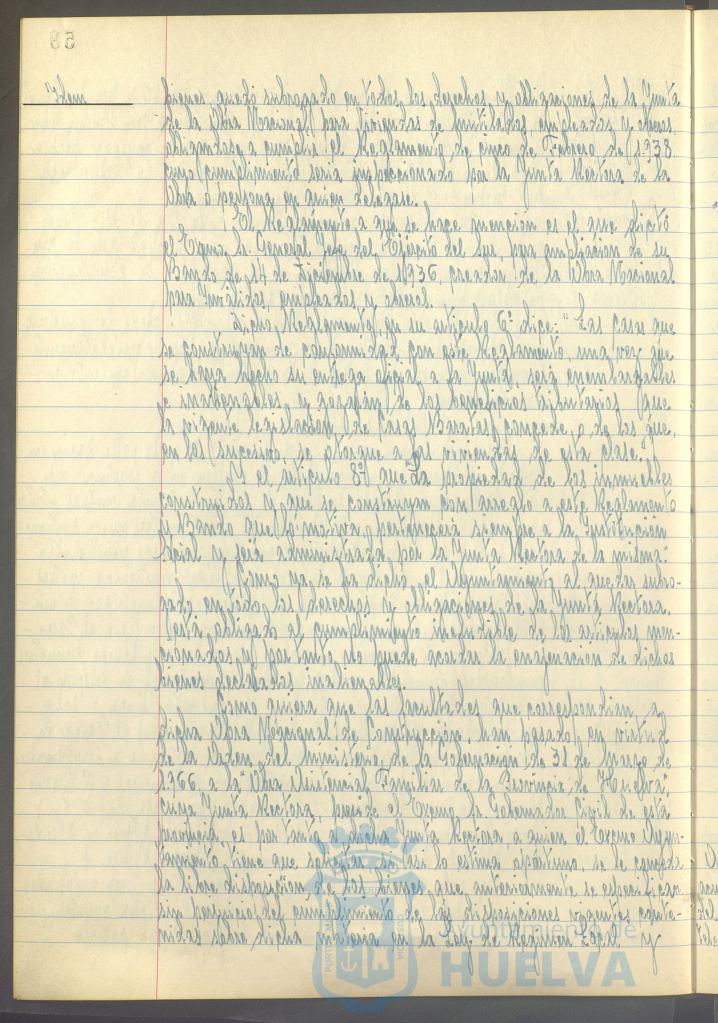 Idem
bienes, quedó subrogado en todos los derechos y obligaciones de la Junta
de la Obra Nacional para viviendas de inválidos, empleados y obreros,
obligandose a cumplir el Reglamento de cinco de Febrero de 1.938
cuyo cumplimiento sería inspeccionado por la Junta Rectora de la
Obra o persona en quien delegase.
El Reglamento a que se hace mención es el que dictó
el Excmo. Sr. General Jefe del Ejército del Sur, para ampliación de su
Bando de 14 de Diciembre de 1.936, creador de la Obra Nacional
para Inválidos, empleados y obreros.
Dicho Reglamento, en su artículo 6º dice: "Las casas que
se construyan de conformidad con este Reglamento, una vez que
se haya hecho su entrega oficial a la Junta, será inembargables
e inalienables y gozarán de los beneficios tributarios que
la vigente legislación de Casas Baratas concede, o de los que,
en los sucesivo, se otorgue a las viviendas de esta clase."
Y el artículo 8º que "La propiedad de los inmuebles
construidos y que se construyan con arreglo a este Reglamento
y Bando que lo motiva, pertenecerá siempre a la Institución
Social y será administrada por la Junta Rectora de la misma."
Como ya se ha dicho, el Ayuntamiento al quedar subro-
gado en todos los derechos y obligaciones de la Junta Rectora,
está obligado al cumplimiento ineludible de los artículos men-
cionados y por tanto no puede acordar la enajenación de dichos
bienes declarados inalienables.
Como quiera que las facultades que correspondían a
dicha Obra Nacional de Construcción, han pasado en virtud
de la Orden del Ministerio de la Gobernación de 31 de Marzo de
1.966 a la "Obra Asistencial Familiar de la Provincia de Huelva",
cuya Junta Rectora, preside el Excmo. Sr. Gobernador Civil de esta
provincia, es por tanto a dicha Junta Rectora, a quien el Excmo. Ayun-
tamiento, tiene que solicitar, si así lo estima oportuno, se le conceda
la libre disposición de los bienes que anteriormente se especifican
sin perjuicio del cumplimiento de las disposiciones vigentes conte-
nidas sobre dicha materia en la Ley de Régimen Local y
Ayuntamiento de
HUELVA